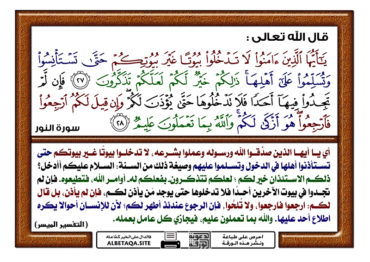 قال الله تعالى :
يَٰٓأَيُّهَا ٱلَّذِينَ ءَامَنُوا۟ لَا تَدْخُلُوا۟ بُيُوتًا غَيْرَ بُيُوتِكُمْ حَتَّىٰ تَسْتَأْنِسُوا۟
وَتُسَلِّمُوا۟ عَلَىٰٓ أَهْلِهَا ۚ ذَٰلِكُمْ خَيْرٌ لَّكُمْ لَعَلَّكُمْ تَذَكَّرُونَ ٢٧ فَإِن لَّمْ
تَجِدُوا۟ فِيهَآ أَحَدًا فَلَا تَدْخُلُوهَا حَتَّىٰ يُؤْذَنَ لَكُمْ ۖ وَإِن قِيلَ لَكُمُ ٱرْجِعُوا۟
فَٱرْجِعُوا۟ ۖ هُوَ أَزْكَىٰ لَكُمْ ۚ وَٱللَّهُ بِمَا تَعْمَلُونَ عَلِيمٌ ٢٨
سورة النور
أي يا أيها الذين صدقوا الله ورسوله وعملوا بشرعه، لا تدخلوا بيوتا غير بيوتكم حتى
تستأذنوا أهلها في الدخول وتسلموا عليهم وصيغة ذلك من السنة: السلام عليكم أأدخل؟
ذلكم الاستئذان خير لكم؛ لعلكم تتذكرون -بفعلكم له- أوامر الله، فتطيعوه. فإن لم
تجدوا في بيوت الآخرين أحدا فلا تدخلوها حتى يوجد من يأذن لكم، فإن لم يأذن، بل قال
لكم: ارجعوا فارجعوا، ولا تلحوا، فإن الرجوع عندئذ أطهر لكم؛ لأن للإنسان أحوالا يكره
اطلاع أحد عليها. والله بما تعملون عليم، فيجازي كل عامل بعمله.
(التفسير الميسر)
احرص على طباعة
ونشر هذه الورقة
ALBETAQA.SITE